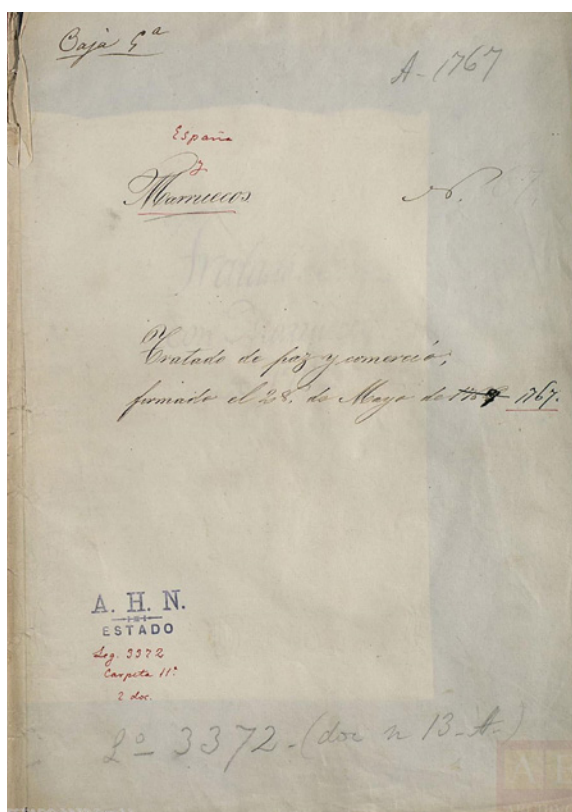 Caja 9ª
A-1767
España
y
Marruecos
N.
Tratado de paz y comercio,
firmado el 28. de Mayo de 1767.
A. H. N.
ESTADO
Leg. 3372
Carpeta 11ª
2 doc.
Lº 3372-(doc n 13-A-)